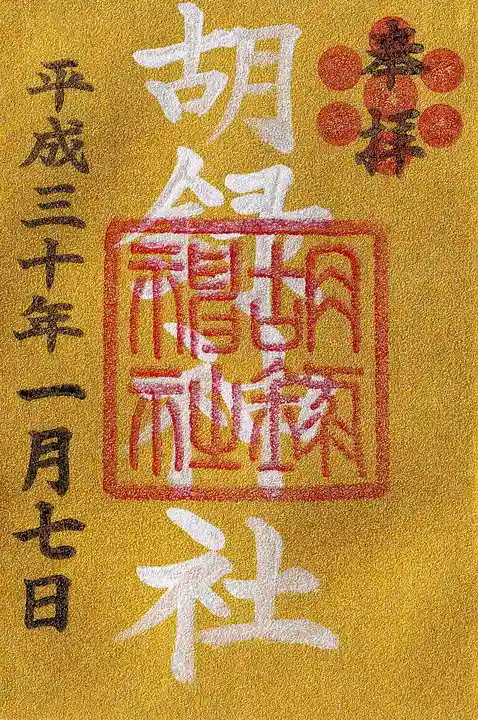 奉拝
胡録神社
胡録神社
平成三十年一月七日